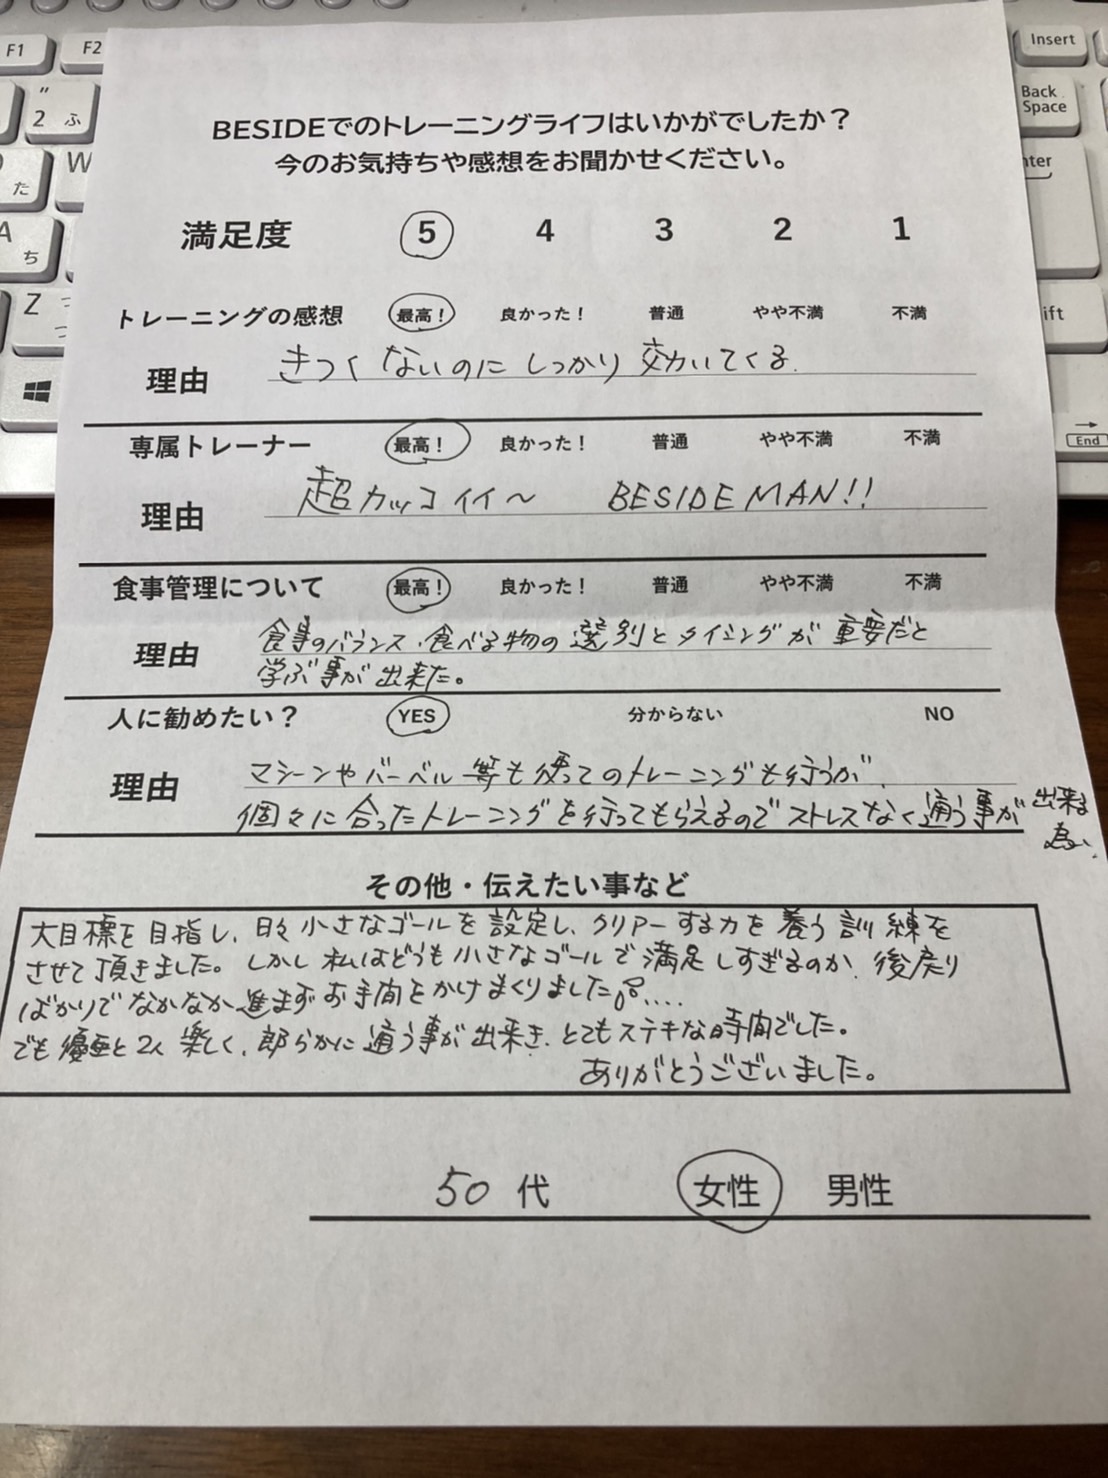 BESIDEでのトレーニングライフはいかがでしたか？
今のお気持ちや感想をお聞かせください。
満足度 5 4 3 2 1
トレーニングの感想 最高！ 良かった！ 普通 やや不満 不満
理由 きつくないのにしっかり効いてくる.
専属トレーナー 最高！ 良かった！ 普通 やや不満 不満
理由 超カッコイイ〜 BESIDE MAN!!
食事管理について 最高！ 良かった！ 普通 やや不満 不満
理由 食事のバランス・食べる物の選別とタイミングが重要だと
学ぶ事が出来た。
人に勧めたい？ YES 分からない NO
理由 マシーンやバーベル等も使ってのトレーニングも行うが、
個々に合ったトレーニングを行ってもらえるのでストレスなく通う事が出来る
為、
その他・伝えたい事など
大目標を目指し、日々小さなゴールを設定し、クリアーする力を養う訓練を
させて頂きました。しかし私はどうも小さなゴールで満足しすぎるのか、後戻り
ばかりでなかなか進まずお手間をかけまくりました....
でも と2人楽しく、郎らかに通う事が出来き、とてもステキな時間でした。
ありがとうございました。
50代 女性 男性
F1
F2
" 2 ふ
W
た
A ち
Z つ っ
Insert
Back Space
nter
ift
End